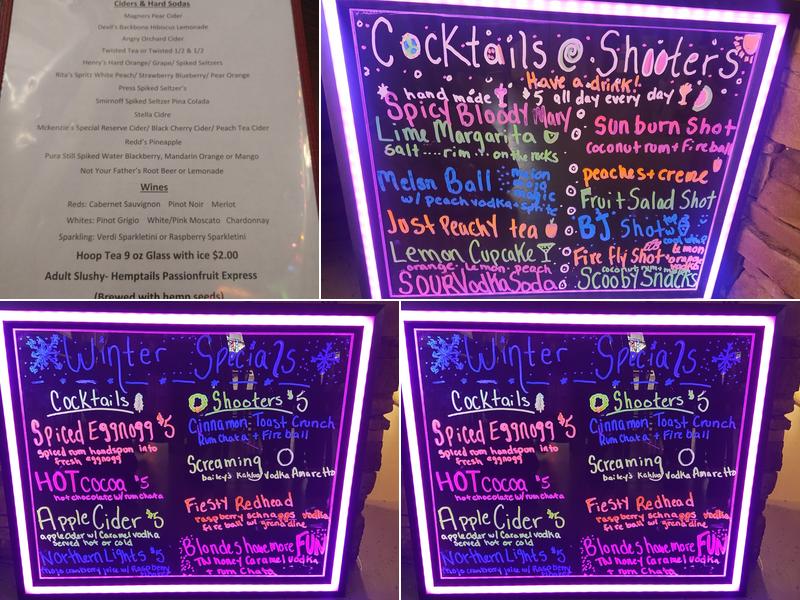 Ciders & Hard Sodas
Magners Pear Cider
Devil's Backbone Hibiscus Lemonade
Angry Orchard Cider
Twisted Tea or Twisted 1/2 & 1/2
Henry's Hard Orange/ Grape/ Spiked Seltzers
Rita's Spritz White Peach/ Strawberry Blueberry/ Pear Orange
Press Spiked Seltzer's
Smirnoff Spiked Seltzer Pina Colada
Stella Cidre
Mckenzie's Special Reserve Cider/ Black Cherry Cider/ Peach Tea Cider
Redd's Pineapple
Pura Still Spiked Water Blackberry, Mandarin Orange or Mango
Not Your Father's Root Beer or Lemonade
Wines
Reds: Cabernet Sauvignon Pinot Noir Merlot
Whites: Pinot Grigio White/Pink Moscato Chardonnay
Sparkling: Verdi Sparkletini or Raspberry Sparkletini
Hoop Tea 9 oz Glass with ice $2.00
Adult Slushy- Hemptails Passionfruit Express
(Brewed with hemp seeds)
Cocktails @ Shooters
Have a drink!
hand made $5 all day every day
Spicy Bloody Mary
Lime Margarita
salt rim on the rocks
Melon Ball melon
magic
w/ peach vodka + sprite
Just Peachy tea
Lemon Cupcake
orange lemon peach
Sour Vodka Soda
Sunburn Shot
coconut rum + Fireball
peaches + creme
Fruit Salad Shot
BJ Shot
cool whip
Fire fly Shot
lemon
orange
vodka
coconut rum +
Scooby Snacks
Winter Specials
Cocktails
Spiced Eggnogg $5
spiced rum handspon into
fresh eggnogg
HOT cocoa $5
hot chocolate w/ rumchata
Apple Cider $5
apple cider w/ Caramel vodka
served hot or cold
Northern Lights $5
mojo cranberry juice w/ Raspberry
Shooters $5
Cinnamon Toast Crunch
Rum Chata + Fireball
Screaming O
bailey's Kahlua Vodka Amaretto
Fiesty Redhead
raspberry schnapps vodka
fire ball w/ grenadine
Blondes have more FUN
TN honey Caramel vodka
+ rum Chata
Winter Specials
Cocktails
Spiced Eggnogg $5
spiced rum handspon into
fresh eggnogg
HOT cocoa $5
hot chocolate w/ rumchata
Apple Cider $5
apple cider w/ Caramel vodka
served hot or cold
Northern Lights $5
mojo cranberry juice w/ Raspberry
Shooters $5
Cinnamon Toast Crunch
Rum Chata + Fireball
Screaming O
bailey's Kahlua Vodka Amaretto
Fiesty Redhead
raspberry schnapps vodka
fire ball w/ grenadine
Blondes have more FUN
TN honey Caramel vodka
+ rum Chata